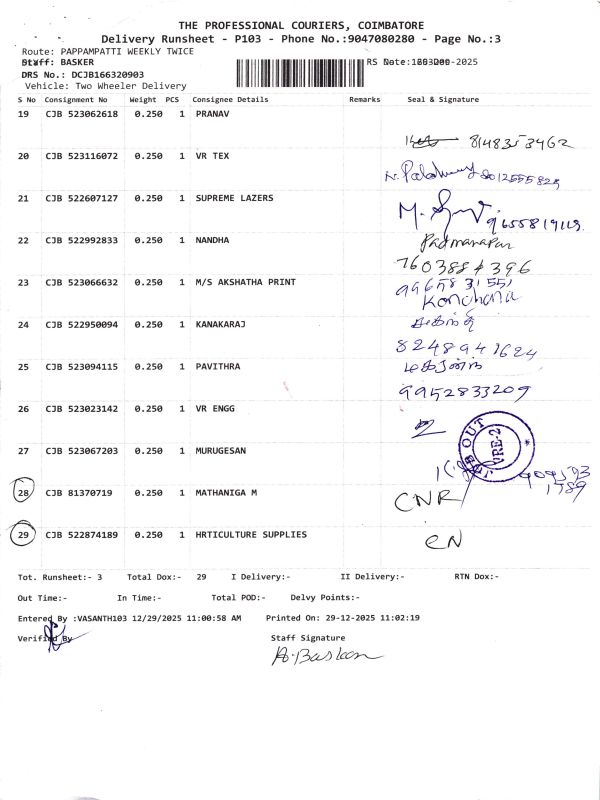 THE PROFESSIONAL COURIERS, COIMBATORE
Delivery Runsheet - P103 - Phone No.:9047080280 - Page No.:3
Route: PAPPAMPATTI WEEKLY TWICE
Staff: BASKER
DRS No.: DCJB166320903
Vehicle: Two Wheeler Delivery
S No Consignment No Weight PCS Consignee Details Remarks Seal & Signature
19 CJB 523062618 0.250 1 PRANAV
8148353462
20 CJB 523116072 0.250 1 VR TEX
21 CJB 522607127 0.250 1 SUPREME LAZERS
9655819119
22 CJB 522992833 0.250 1 NANDHA
23 CJB 523066632 0.250 1 M/S AKSHATHA PRINT
9965831551
Kanchana
24 CJB 522950094 0.250 1 KANAKARAJ
8248941624
25 CJB 523094115 0.250 1 PAVITHRA
9952833209
26 CJB 523023142 0.250 1 VR ENGG
27 CJB 523067203 0.250 1 MURUGESAN
28 CJB 81370719 0.250 1 MATHANIGA M
CNR
29 CJB 522874189 0.250 1 HRTICULTURE SUPPLIES
CN
Tot. Runsheet:- 3 Total Dox:- 29 I Delivery:- II Delivery:- RTN Dox:-
Out Time:- In Time:- Total POD:- Delvy Points:-
Entered By :VASANTH103 12/29/2025 11:00:58 AM Printed On: 29-12-2025 11:02:19
Verified By Staff Signature
A. Basker